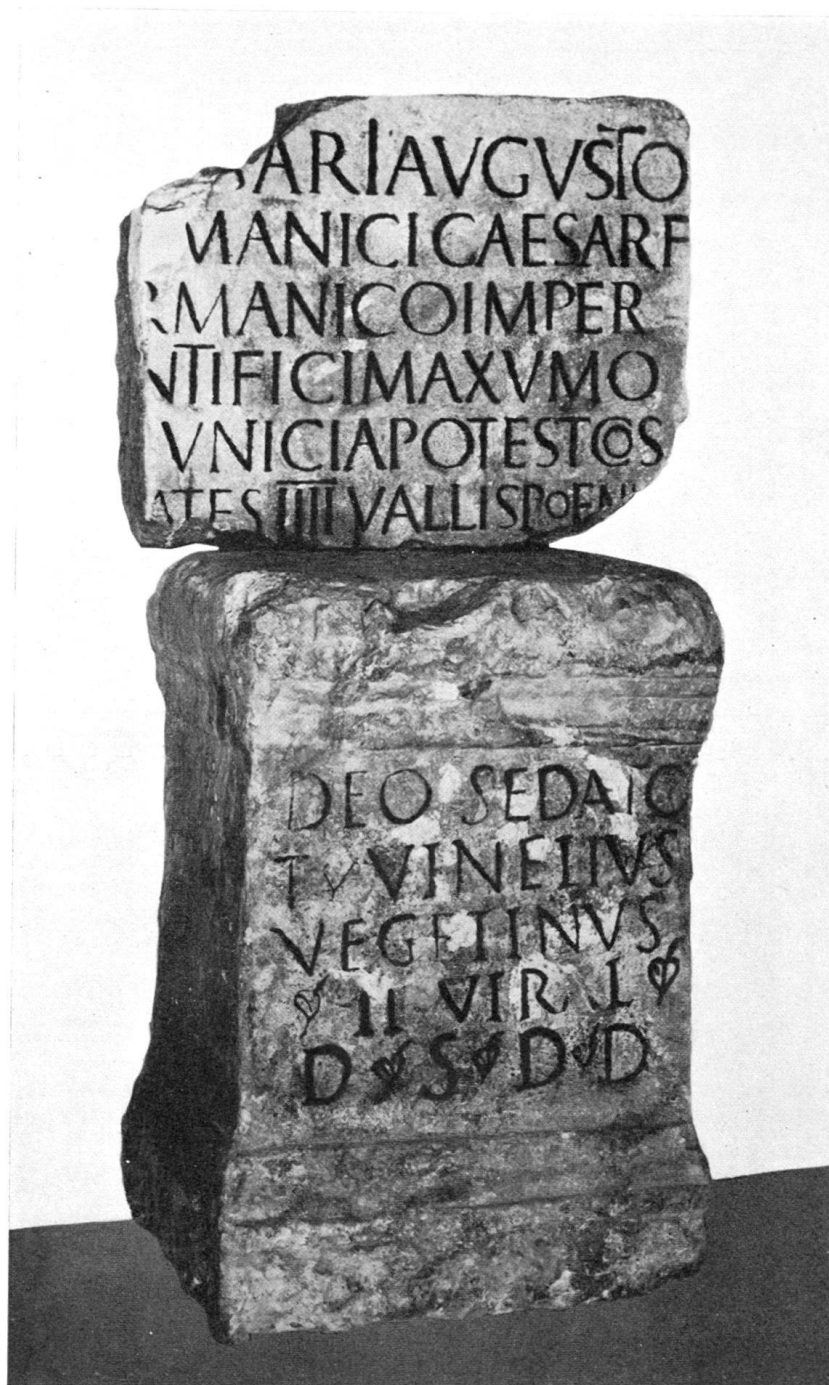 ARI AVGVSTO
MANICI CAESAR F
RMANICO IMPER
NTIFICI MAXVMO
VNICIA POTEST COS
ATES IIII VALLIS POENI
DEO SEDATO
T V VINELIVS
VEGETINVS
II VIRAL
D S D D